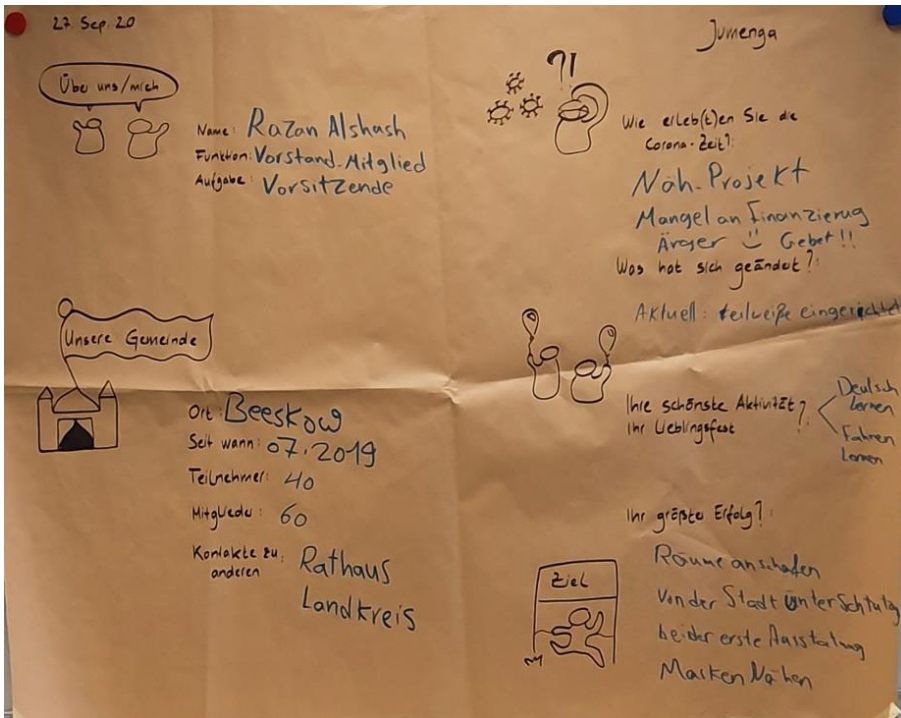 27. Sep. 20
Über uns/mich
Name: Razan Alshash
Funktion: Vorstand-Mitglied
Aufgabe: Vorsitzende
Unsere Gemeinde
Ort: Beeskow
Seit wann: 07.2019
Teilnehmer: 40
Mitglieder: 60
Kontakte zu anderen: Rathaus
Landkreis
Jumenga
?!
Wie erleb(t)en Sie die
Corona-Zeit?:
Näh-Projekt
Mangel an Finanzierug
Ärger Gebet!!
Was hat sich geändert?:
Aktuell: teilweiße eingerichtet
Ihre schönste Aktivität?
Ihr Lieblingsfest
Deutsch
lernen
Fahren
Lernen
Ihr größter Erfolg?:
Ziel
Räume anschafen
Von der Stadt
bei der erste
Masken Nähen